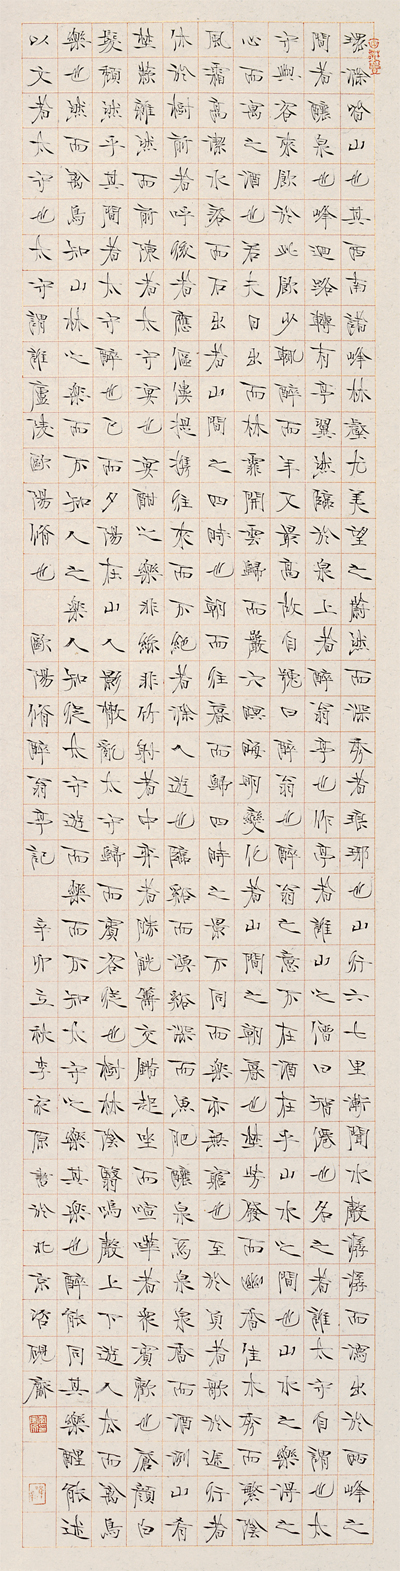 環滁皆山也其西南諸峰林壑尤美望之蔚然而深秀者琅琊也山行六七里漸聞水聲潺潺而瀉出於兩峰之
間者釀泉也峰迴路轉有亭翼然臨於泉上者醉翁亭也作亭者誰山之僧曰智僊也名之者誰太守自謂也太
守與客來飲於此飲少輒醉而年又最高故自號曰醉翁也醉翁之意不在酒在乎山水之間也山水之樂得之
心而寓之酒也若夫日出而林霏開雲歸而巖穴暝晦明變化者山間之朝暮也野芳發而幽香佳木秀而繁陰
風霜高潔水落而石出者山間之四時也朝而往暮而歸四時之景不同而樂亦無窮也至於負者歌於途行者
休於樹前者呼後者應傴僂提攜往來而不絕者滁人遊也臨谿而漁谿深而魚肥釀泉為酒泉香而酒洌山肴
野蔌雜然而前陳者太守宴也宴酣之樂非絲非竹射者中弈者勝觥籌交錯起坐而喧嘩者眾賓歡也蒼顏白
髮頹然乎其間者太守醉也已而夕陽在山人影散亂太守歸而賓客從也樹林陰翳鳴聲上下遊人去而禽鳥
樂也然而禽鳥知山林之樂而不知人之樂人知從太守遊而樂而不知太守之樂其樂也醉能同其樂醒能述
以文者太守也太守謂誰廬陵歐陽脩也 歐陽脩醉翁亭記 辛卯立秋李家原書於北京硯齋